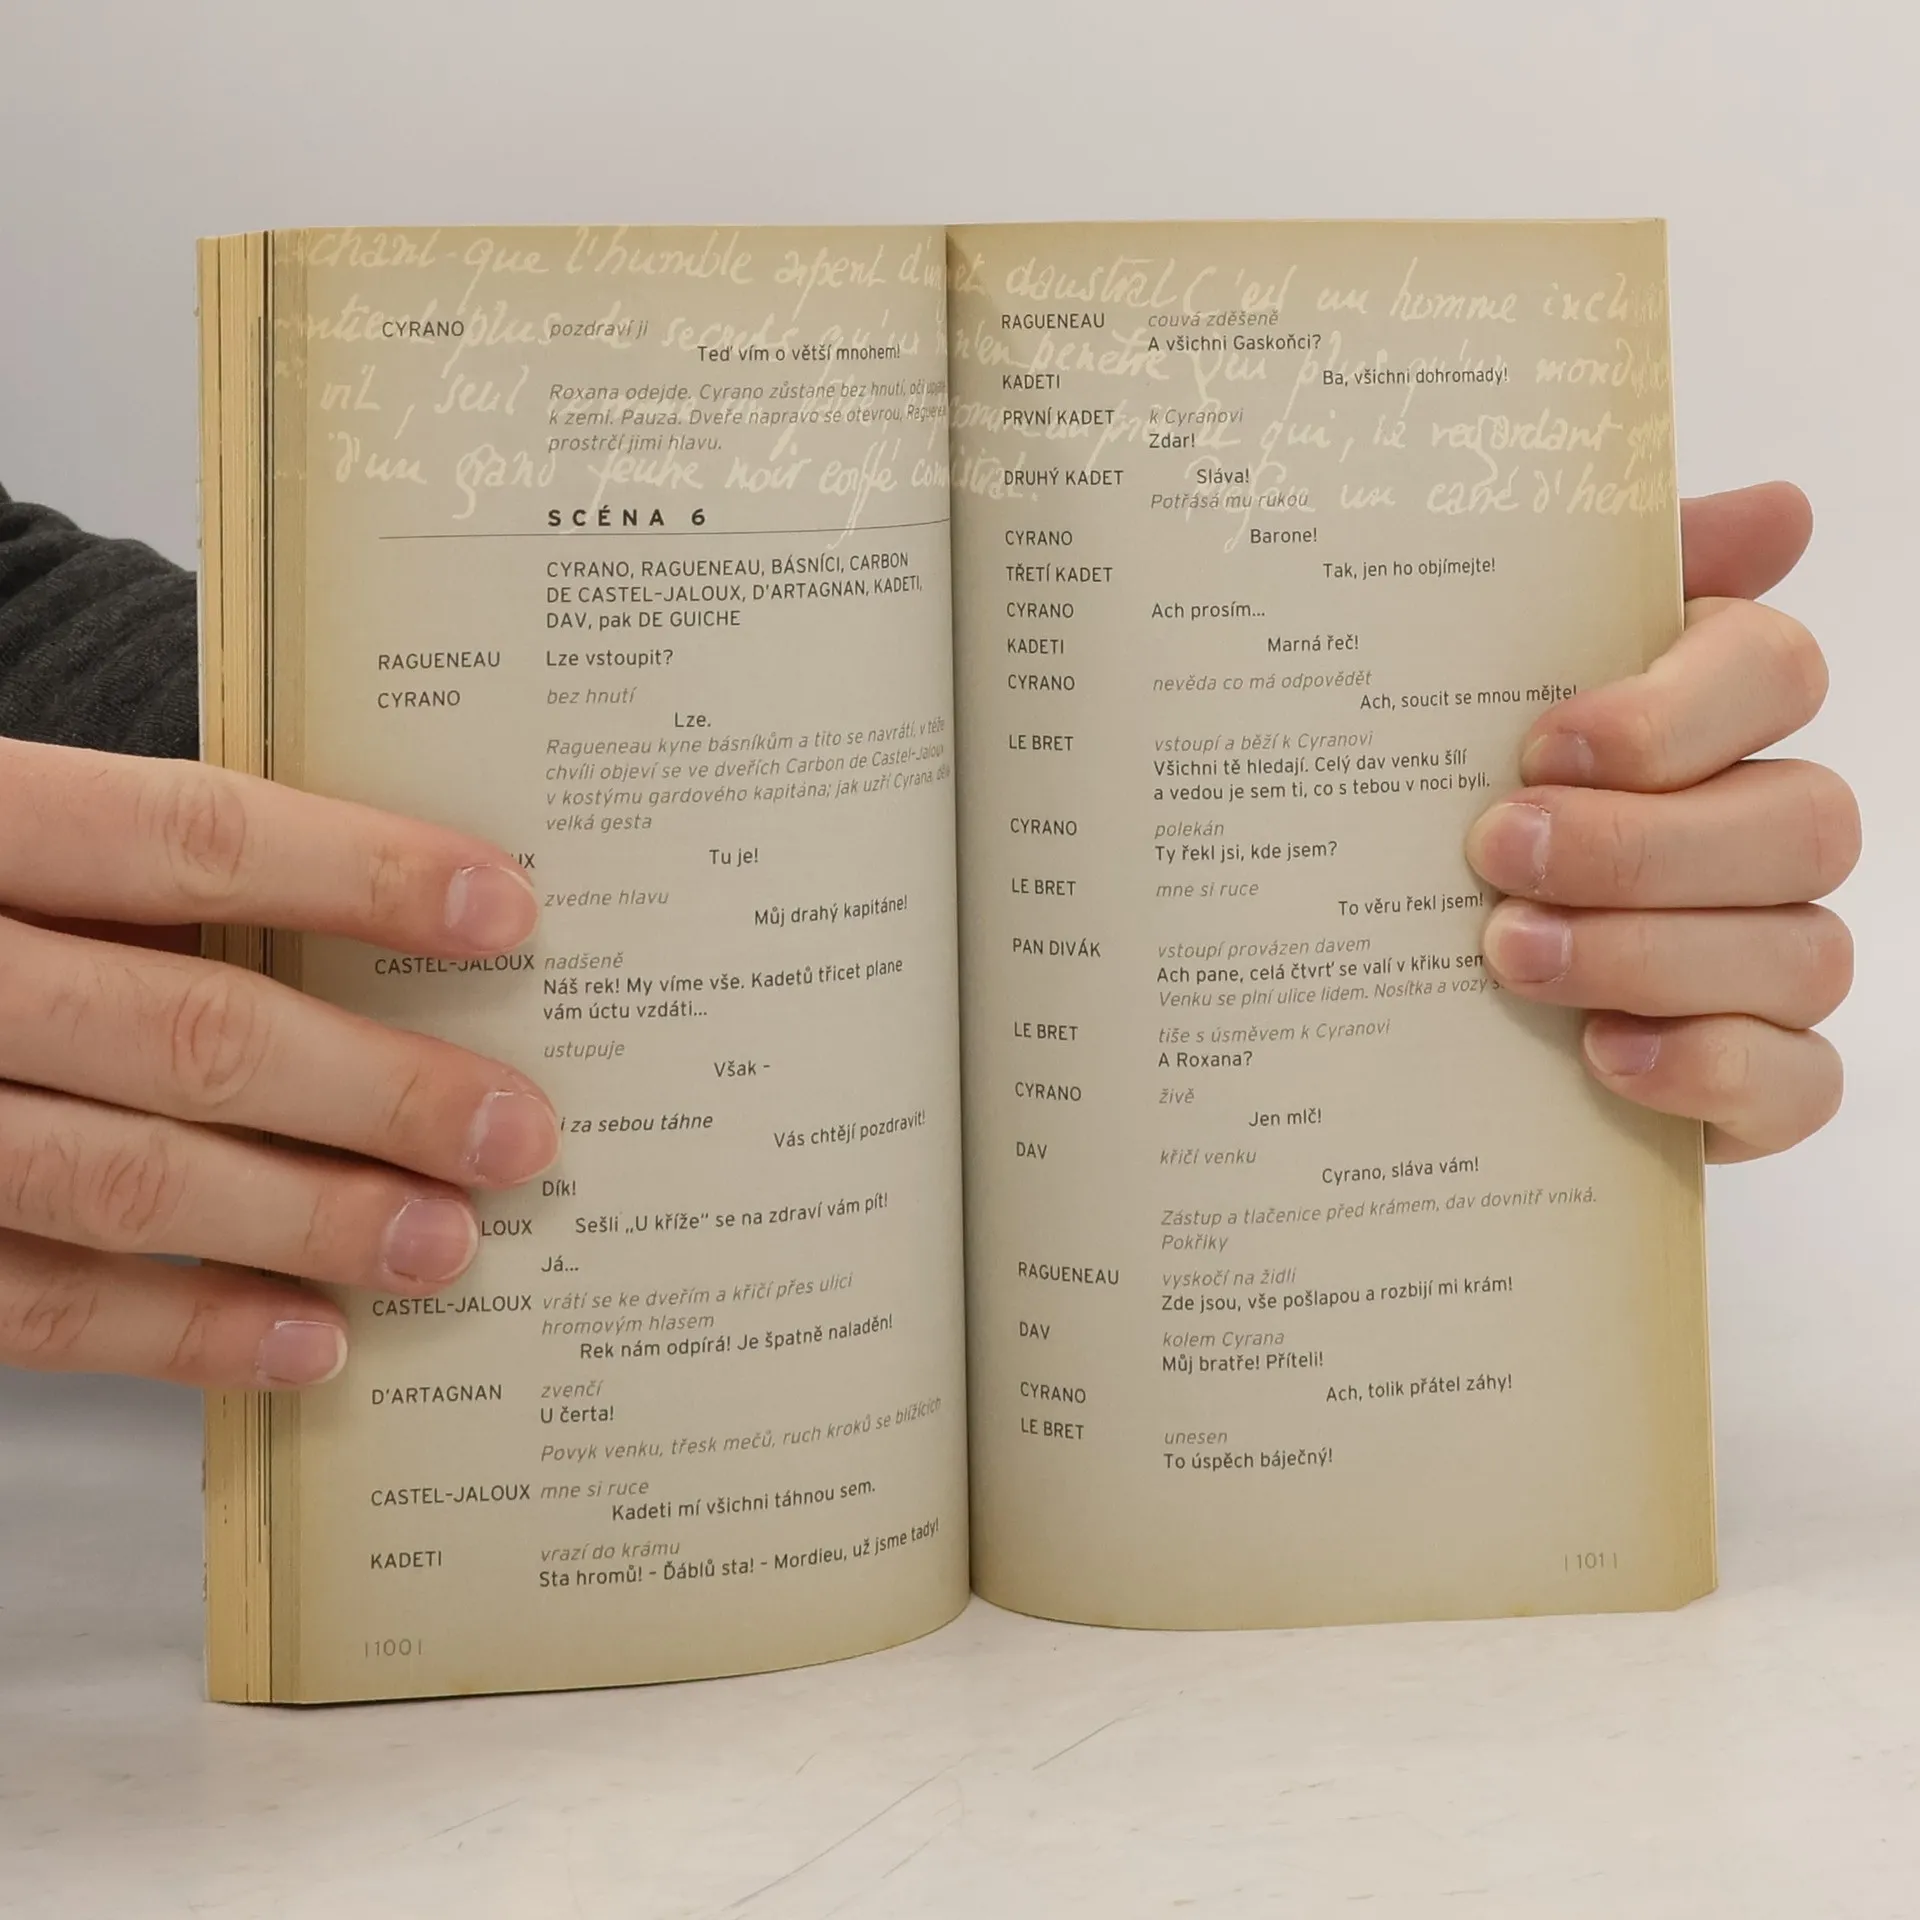 CYRANO pozdraví ji
Teď vím o větší mnohem!
Roxana odejde. Cyrano zůstane bez hnutí, oči
k zemi. Pauza. Dveře napravo se otevrou,
prostrčí jimi hlavu.
SCÉNA 6
CYRANO, RAGUENEAU, BÁSNÍCI, CARBON
DE CASTEL-JALOUX, D'ARTAGNAN, KADETI,
DAV, pak DE GUICHE
RAGUENEAU Lze vstoupit?
CYRANO bez hnutí
Lze.
Ragueneau kyne básníkům a tito se navrátí, v téže
chvíli objeví se ve dveřích Carbon de Castel-Jaloux
v kostýmu gardového kapitána; jak uzří Cyrana,
velká gesta
UX Tu je!
zvedne hlavu
Můj drahý kapitáne!
CASTEL-JALOUX nadšeně
Náš rek! My víme vše. Kadetů třicet plane
vám úctu vzdáti...
ustupuje
Však -
i za sebou táhne
Vás chtějí pozdravit!
Dík!
LOUX Sešli „U kříže" se na zdraví vám pít!
Já...
CASTEL-JALOUX vrátí se ke dveřím a křičí přes ulici
hromovým hlasem
Rek nám odpírá! Je špatně naladěn!
D'ARTAGNAN zvenčí
U čerta!
Povyk venku, třesk mečů, ruch kroků se blížících
CASTEL-JALOUX mne si ruce
Kadeti mí všichni táhnou sem.
KADETI vrazí do krámu
Sta hromů! - Ďáblů sta! - Mordieu, už jsme tady!
|100|
RAGUENEAU couvá zděšeně
A všichni Gaskoňci?
KADETI Ba, všichni dohromady!
PRVNÍ KADET k Cyranovi
Zdar!
DRUHÝ KADET Sláva!
Potřásá mu rukou
CYRANO Barone!
TŘETÍ KADET Tak, jen ho objímejte!
CYRANO Ach prosím...
KADETI Marná řeč!
CYRANO nevěda co má odpovědět
Ach, soucit se mnou mějte!
LE BRET vstoupí a běží k Cyranovi
Všichni tě hledají. Celý dav venku šílí
a vedou je sem ti, co s tebou v noci byli.
CYRANO polekán
Ty řekl jsi, kde jsem?
LE BRET mne si ruce
To věru řekl jsem!
PAN DIVÁK vstoupí provázen davem
Ach pane, celá čtvrť se valí v křiku sem
Venku se plní ulice lidem. Nosítka a vozy
LE BRET tiše s úsměvem k Cyranovi
A Roxana?
CYRANO živě
Jen mlč!
DAV křičí venku
Cyrano, sláva vám!
Zástup a tlačenice před krámem, dav dovnitř vniká.
Pokřiky
RAGUENEAU vyskočí na židli
Zde jsou, vše pošlapou a rozbijí mi krám!
DAV kolem Cyrana
Můj bratře! Příteli!
CYRANO Ach, tolik přátel záhy!
LE BRET unesen
To úspěch báječný!
|101|